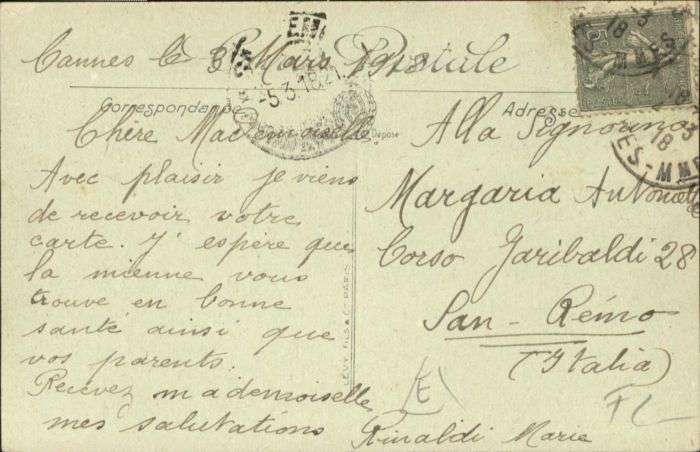 Cannes le 3 Mars 1918
Carte Postale
Correspondance
Adresse
Chère Mademoiselle
Avec plaisir je viens
de recevoir votre
carte. J'espère que
la mienne vous
trouve en bonne
santé ainsi que
vos parents.
Recevez mademoiselle
mes salutations
Rinaldi Marie
Alla Signorina
Margaria
Corso Garibaldi 28
San-Rémo
(Italia)
LEVY FILS & C. PARIS
5.3.18
(E)